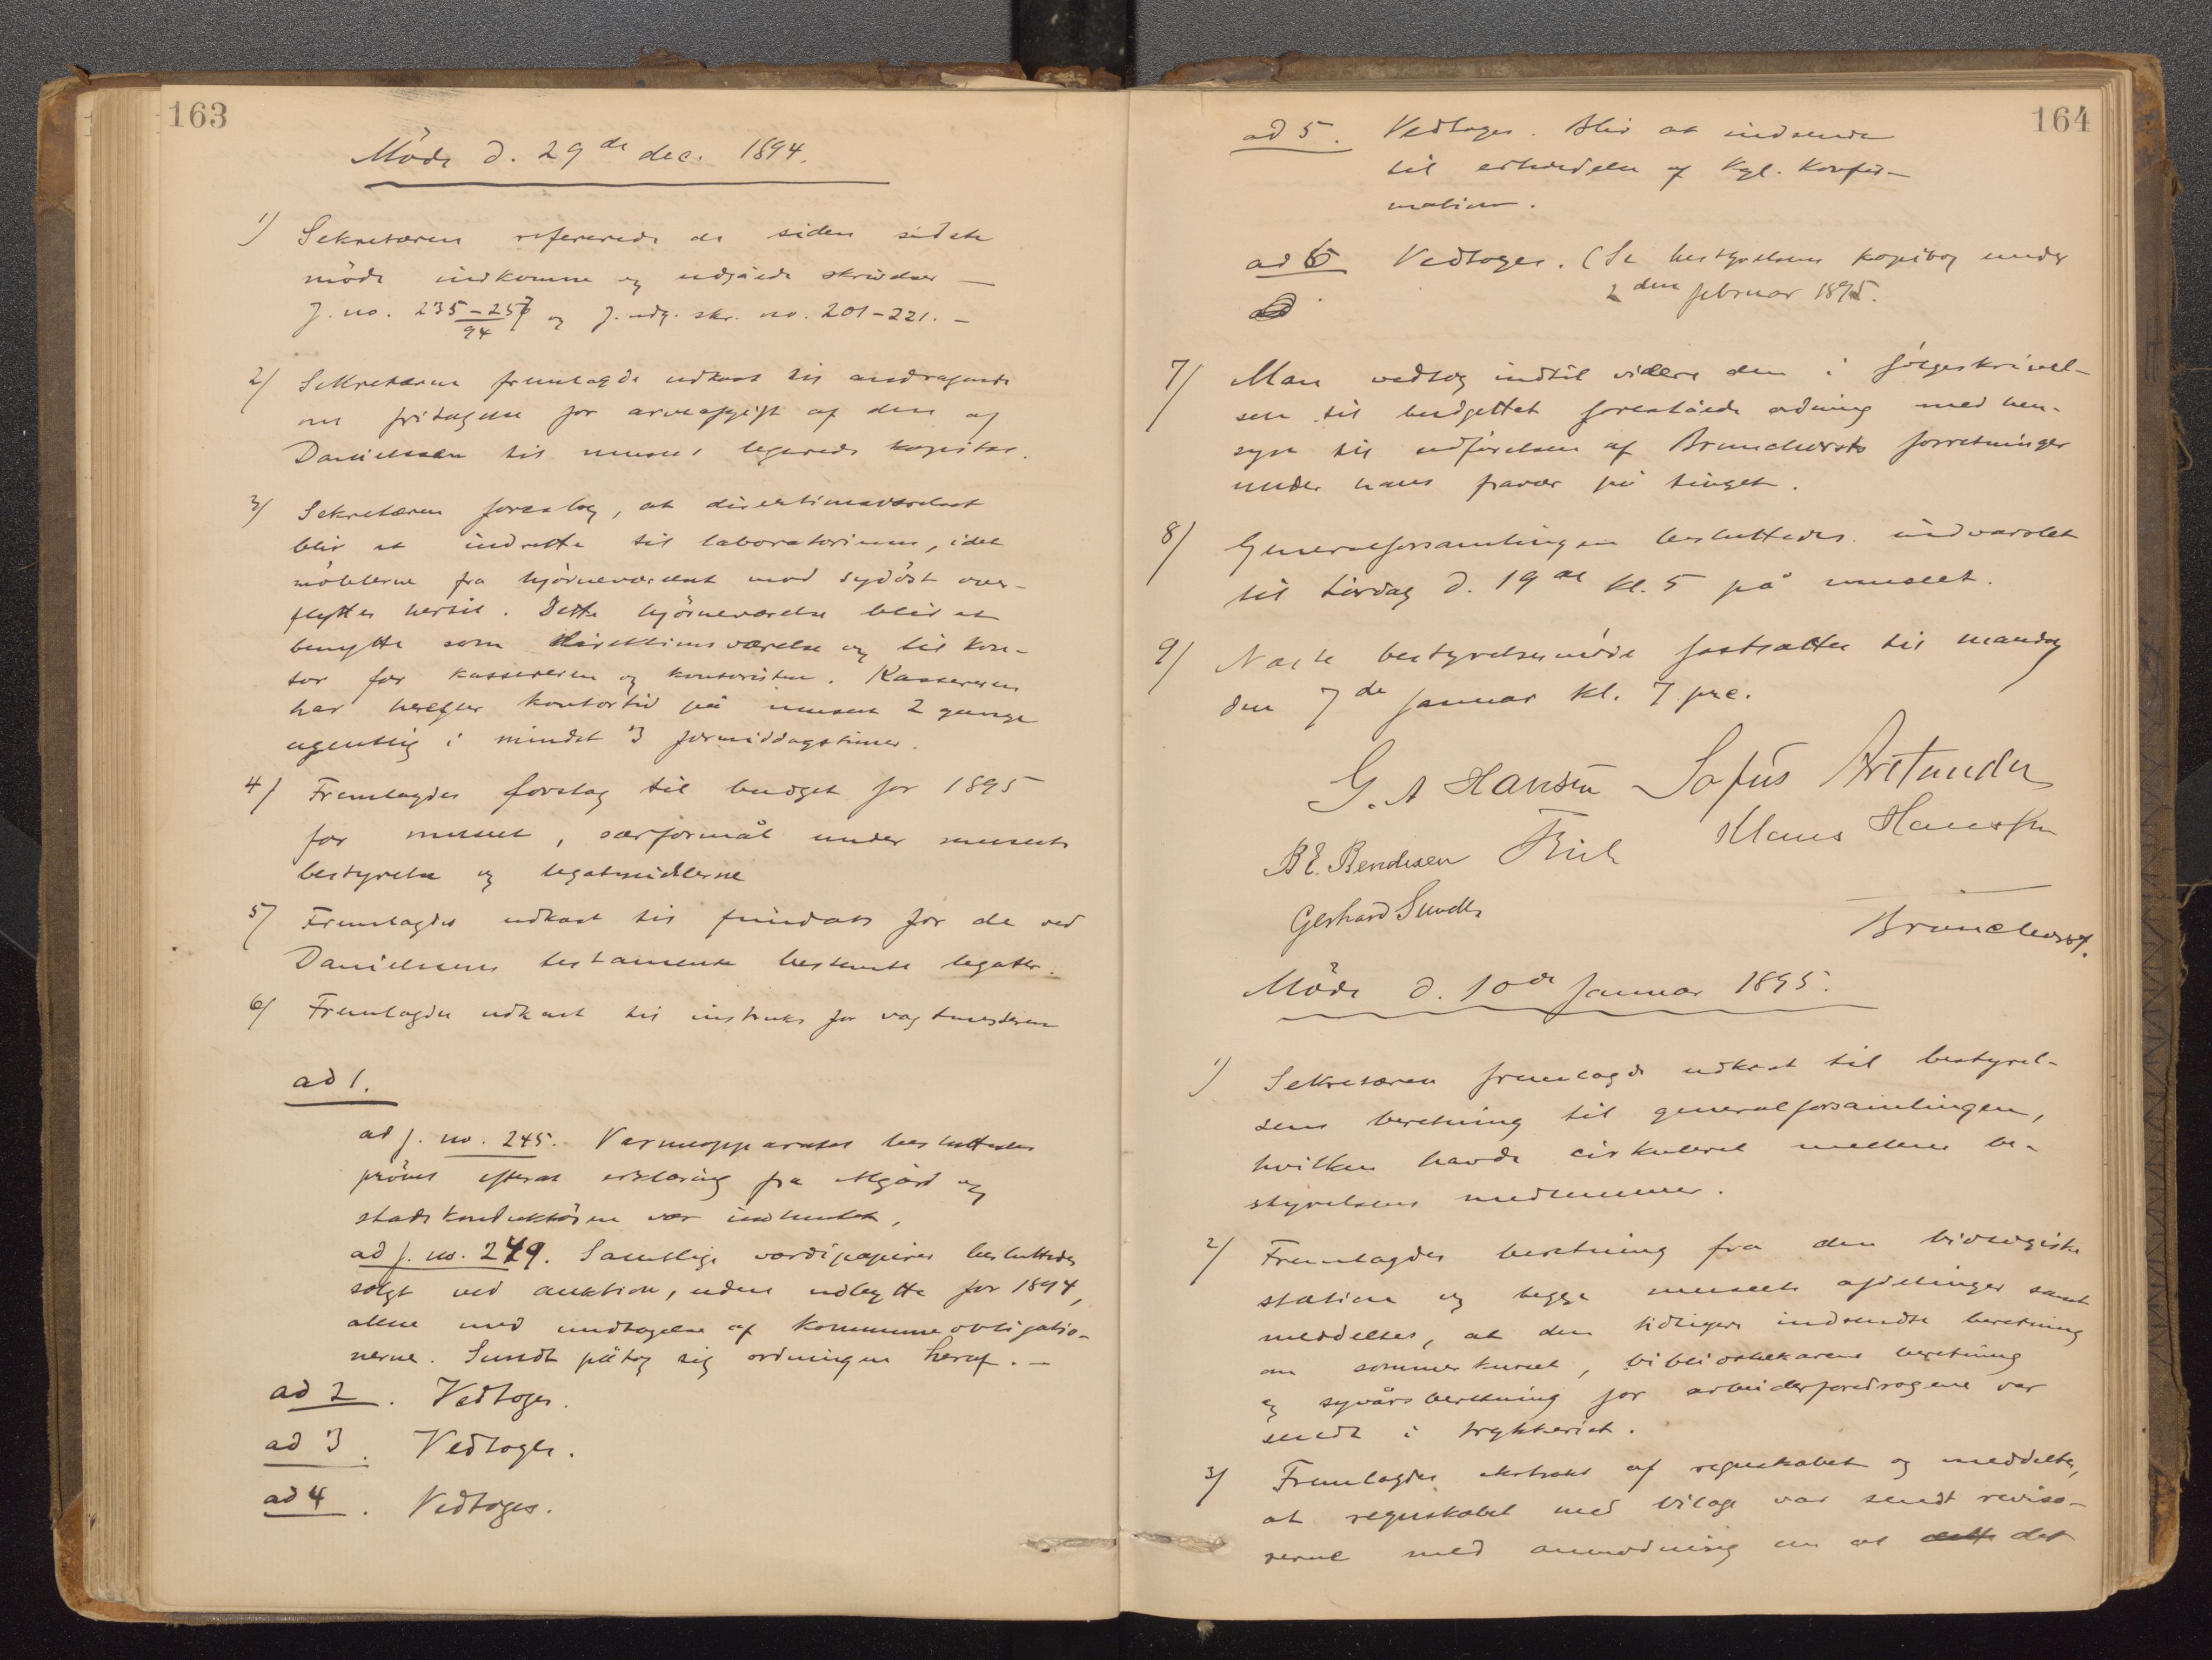 163
Möde d. 29de dec. 1894.
1) Sekretæren refererede de siden sidste
möde indkomne og udgåede skrivelser —
J. no. 235-257/94 og J. udg. skr. no. 201-221. —
2) Sekretæren fremlagde udkast til andragende
om fritagelse for arveafgift af den af
Danielssen til museet legerede kapital.
3) Sekretæren foreslog, at direktionsværelset
blir at indrette til laboratorium, idet
möblerne fra hjörneværelset mod sydöst over-
flyttes hertil. Dette hjörneværelse blir at
benytte som direktionsværelse og til kon-
tor for kassereren og kontoristen. Kassereren
har herefter kontortid på museet 2 gange
ugentlig i mindst 3 formiddagstimer.
4) Fremlagdes forslag til budget for 1895
for museet, særformål under museets
bestyrelse og legatmidlerne
5) Fremlagdes udkast til fundats for de ved
Danielssens testamente bestemte legater.
6) Fremlagdes udkast til instruks for vagtmesteren
ad 1.
ad j. no. 245. Varmeapparatet besluttedes
prövet efterat erklæring fra Algård og
stadskonduktören var indhentet,
ad j. no. 249. Samtlige værdipapirer besluttedes
solgt ved auktion, uden udbytte for 1894,
alene med undtagelse af kommuneobligatio-
nerne. Sundt påtog sig ordningen heraf. —
ad 2. Vedtoges.
ad 3. Vedtoges.
ad 4. Vedtoges.
164
ad 5. Vedtoges. Blir at indsende
til erhvervelse af kgl. konfir-
mation.
ad 6 Vedtoges. (Se bestyrelsens kopibog under
2den februar 1895.
7) Man vedtog indtil videre den i fölgeskrivel-
sen til budgettet foreslåede ordning med hen-
syn til udförelsen af Brunchorsts forretninger
under hans fravær på tinget.
8) Generalforsamlingen besluttedes indvarslet
til Lördag d. 19de kl. 5 på museet.
9) Næste bestyrelsesmöde fastsattes til mandag
den 7de januar kl. 7 prc.
G. A Hansen Sofus Arctander
B E. Bendixen Friele Klaus Hanssen
Gerhard Sundt
Brunchorst.
Möde d. 10de Januar 1895.
1) Sekretæren fremlagde udkast til bestyrel-
sens beretning til generalforsamlingen,
hvilken havde cirkuleret mellem be-
styrelsens medlemmer.
2) Fremlagdes beretning fra den biologiske
station og begge museets afdelinger samt
meddeltes, at den tidligere indsendte beretning
om sommerkurset, bibliothekarens beretning
og syvårsberetning for arbeiderforedragene var
sendt i trykkeriet.
3) Fremlagdes ekstrakt af regnskabet og meddeltes,
at regnskabet med bilage var sendt reviso-
rerne med anmodning om at dette det